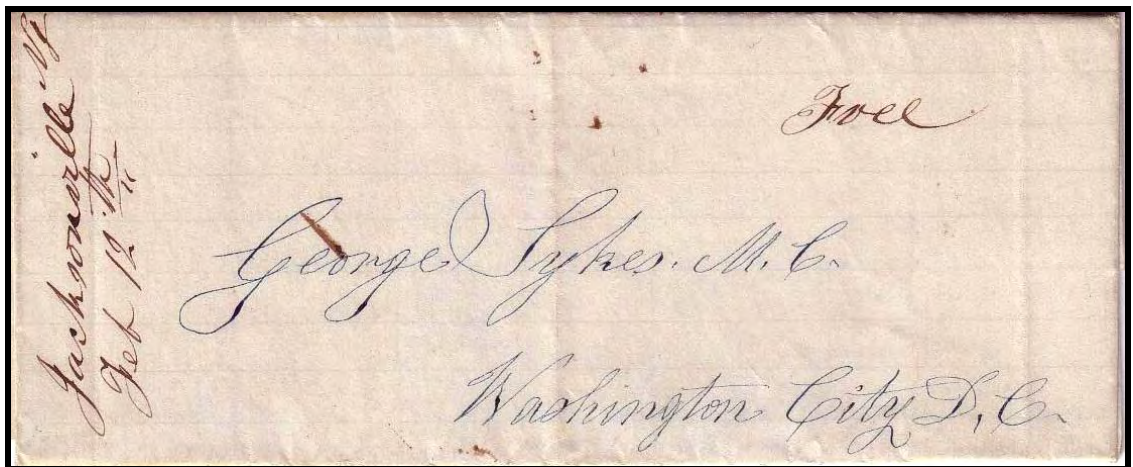 Jacksonville NJ
Feb 12th
Free
George Sykes. M. C.
Washington City D, C.